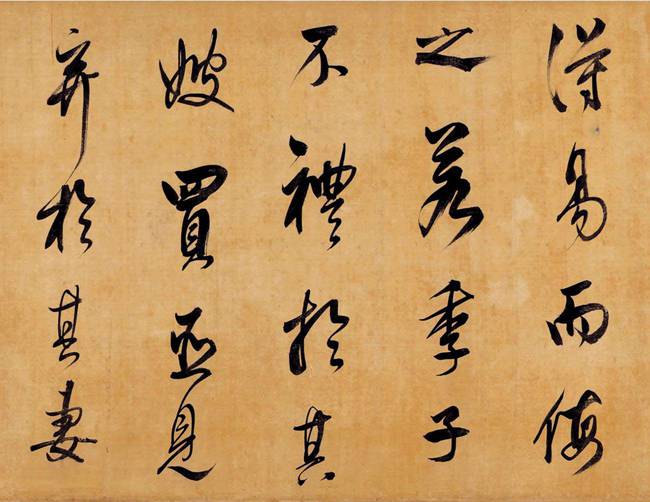 得易而侮
之若季子
不禮於其
嫂買臣見
弃於其妻